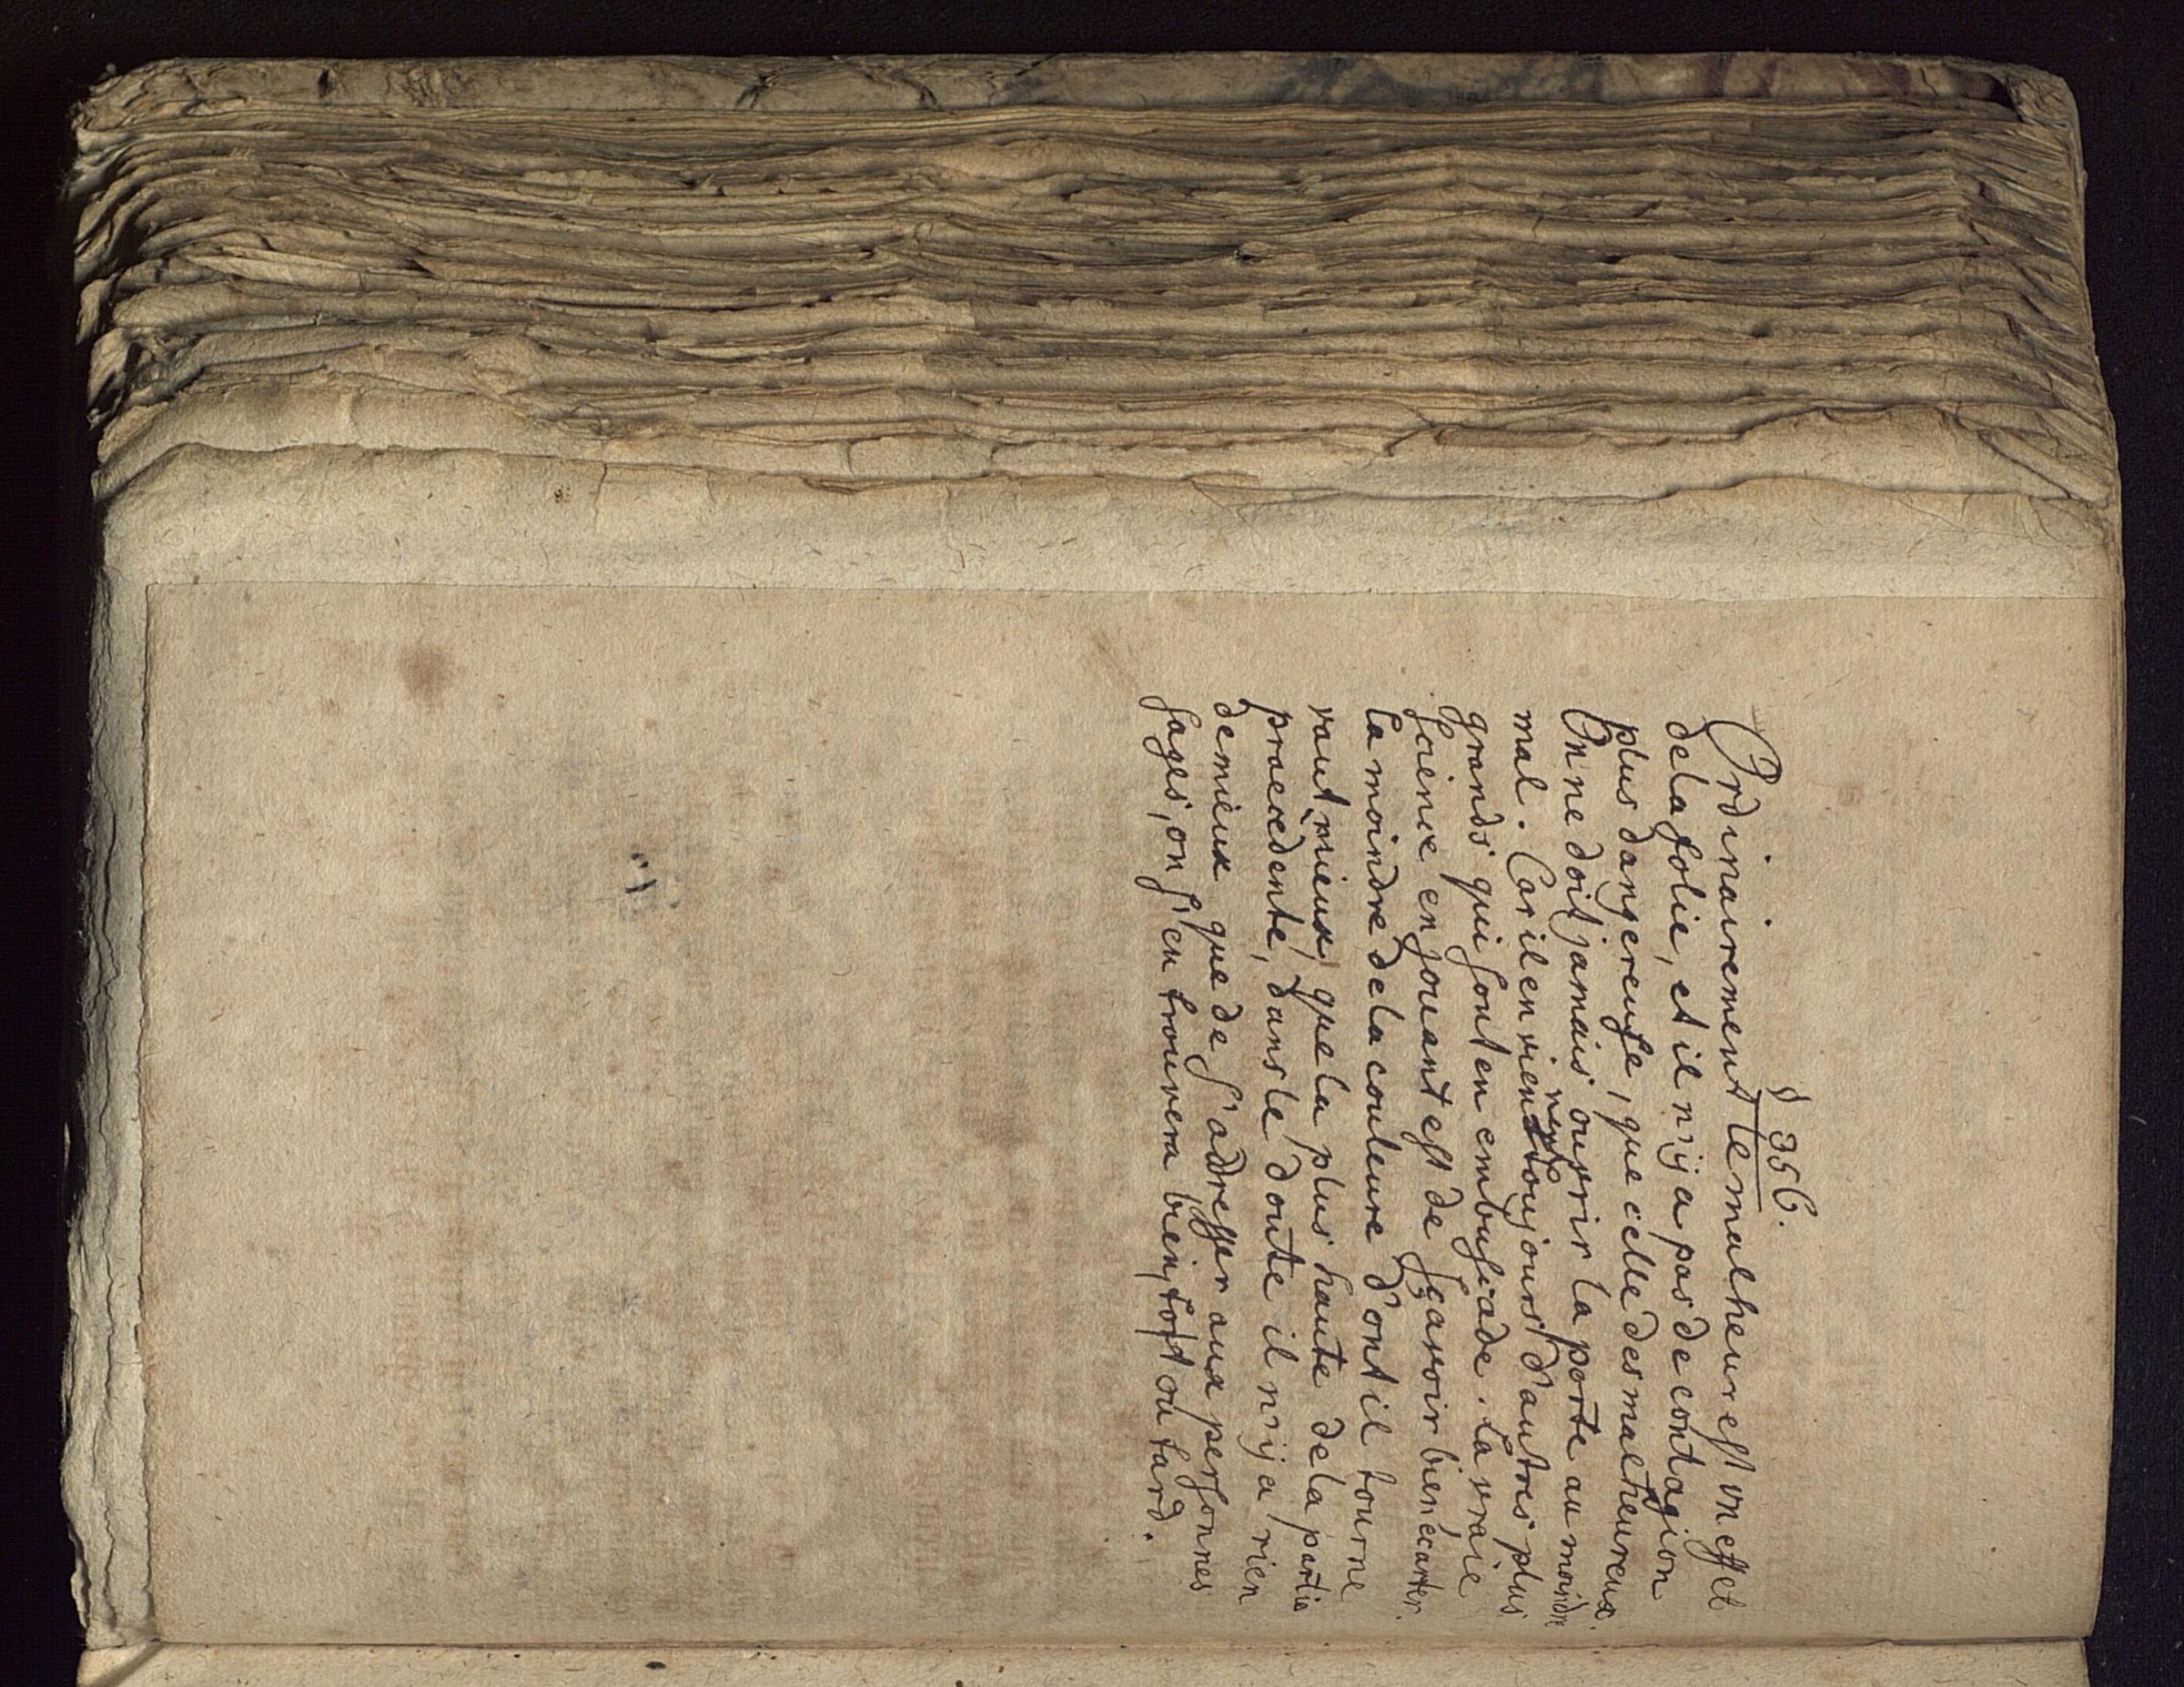 § 356.
Ordinairement le malheur est un effet
de la folie, et il n'ij a pas de contagion
plus dangereuse, que celle des malheureux.
On ne doit jamais ouvrir la porte au moindre
mal. Car il en vient toujours d'autres plus
grands qui sont en embuscade. La vraie
science en jouant est de sçavoir bien écarter.
La moindre de la couleure d'ont il tourne
vaut mieux, que la plus haute de la partie
praecedente, dans le doute il n'ij a rien
de mieux que de s'addresser aux personnes
sages, on s'en trouvera bien, tost ou tard.